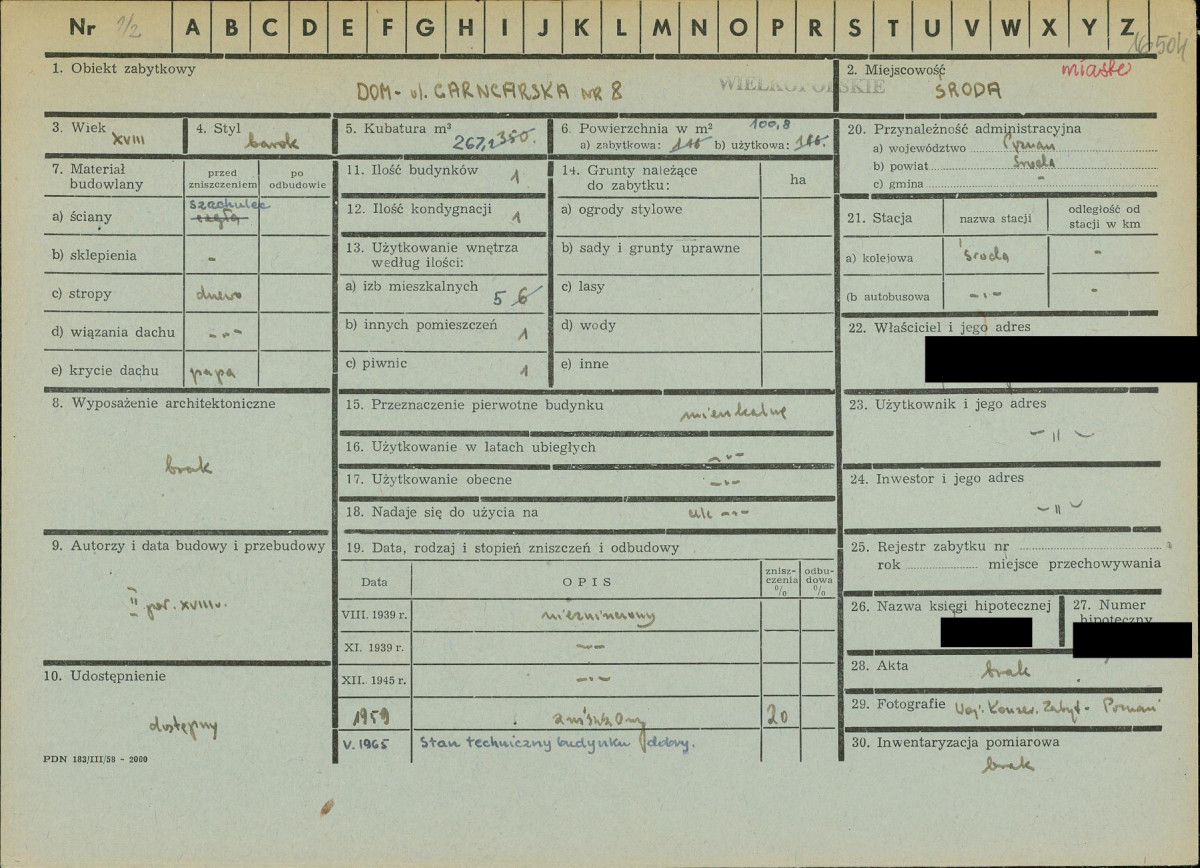 Nr 1/2 A B C D E F G H I J K L M N O P R S T U V W X Y Z
16504
1. Obiekt zabytkowy
DOM - ul. GARNCARSKA NR 8
WIELKOPOLSKIE
2. Miejscowość
miasto
ŚRODA
3. Wiek
XVIII
4. Styl
barok
5. Kubatura m³
267,2 350.
6. Powierzchnia w m²
100,8
a) zabytkowa: b) użytkowa:
7. Materiał budowlany
przed zniszczeniem
po odbudowie
a) ściany szachulec cegła
b) sklepienia -
c) stropy drewno
d) wiązania dachu -"-
e) krycie dachu papa
8. Wyposażenie architektoniczne
brak
9. Autorzy i data budowy i przebudowy
II poł. XVIII w.
10. Udostępnienie
dostępny
PDN 183/III/58 - 2000
11. Ilość budynków 1
12. Ilość kondygnacji 1
13. Użytkowanie wnętrza
według ilości:
a) izb mieszkalnych 5 6
b) innych pomieszczeń 1
c) piwnic 1
14. Grunty należące
do zabytku:
ha
a) ogrody stylowe
b) sady i grunty uprawne
c) lasy
d) wody
e) inne
15. Przeznaczenie pierwotne budynku
mieszkalne
16. Użytkowanie w latach ubiegłych -"-
17. Użytkowanie obecne -"-
18. Nadaje się do użycia na -"-
19. Data, rodzaj i stopień zniszczeń i odbudowy
Data
OPIS
znisz-
czenia
%
odbu-
dowa
%
VIII. 1939 r. niezniszczony
XI. 1939 r. -"-
XII. 1945 r. -"-
1959 zniszczony 20
V. 1965 Stan techniczny budynku dobry.
20. Przynależność administracyjna
a) województwo Poznań
b) powiat Środa
c) gmina -
21. Stacja
nazwa stacji
odległość od
stacji w km
a) kolejowa Środa -
(b autobusowa -"- -
22. Właściciel i jego adres
23. Użytkownik i jego adres
-"-
24. Inwestor i jego adres
-"-
25. Rejestr zabytku nr
rok miejsce przechowywania
26. Nazwa księgi hipotecznej
27. Numer
hipoteczny
28. Akta brak
29. Fotografie Woj. Konser. Zabyt - Poznań
30. Inwentaryzacja pomiarowa
brak